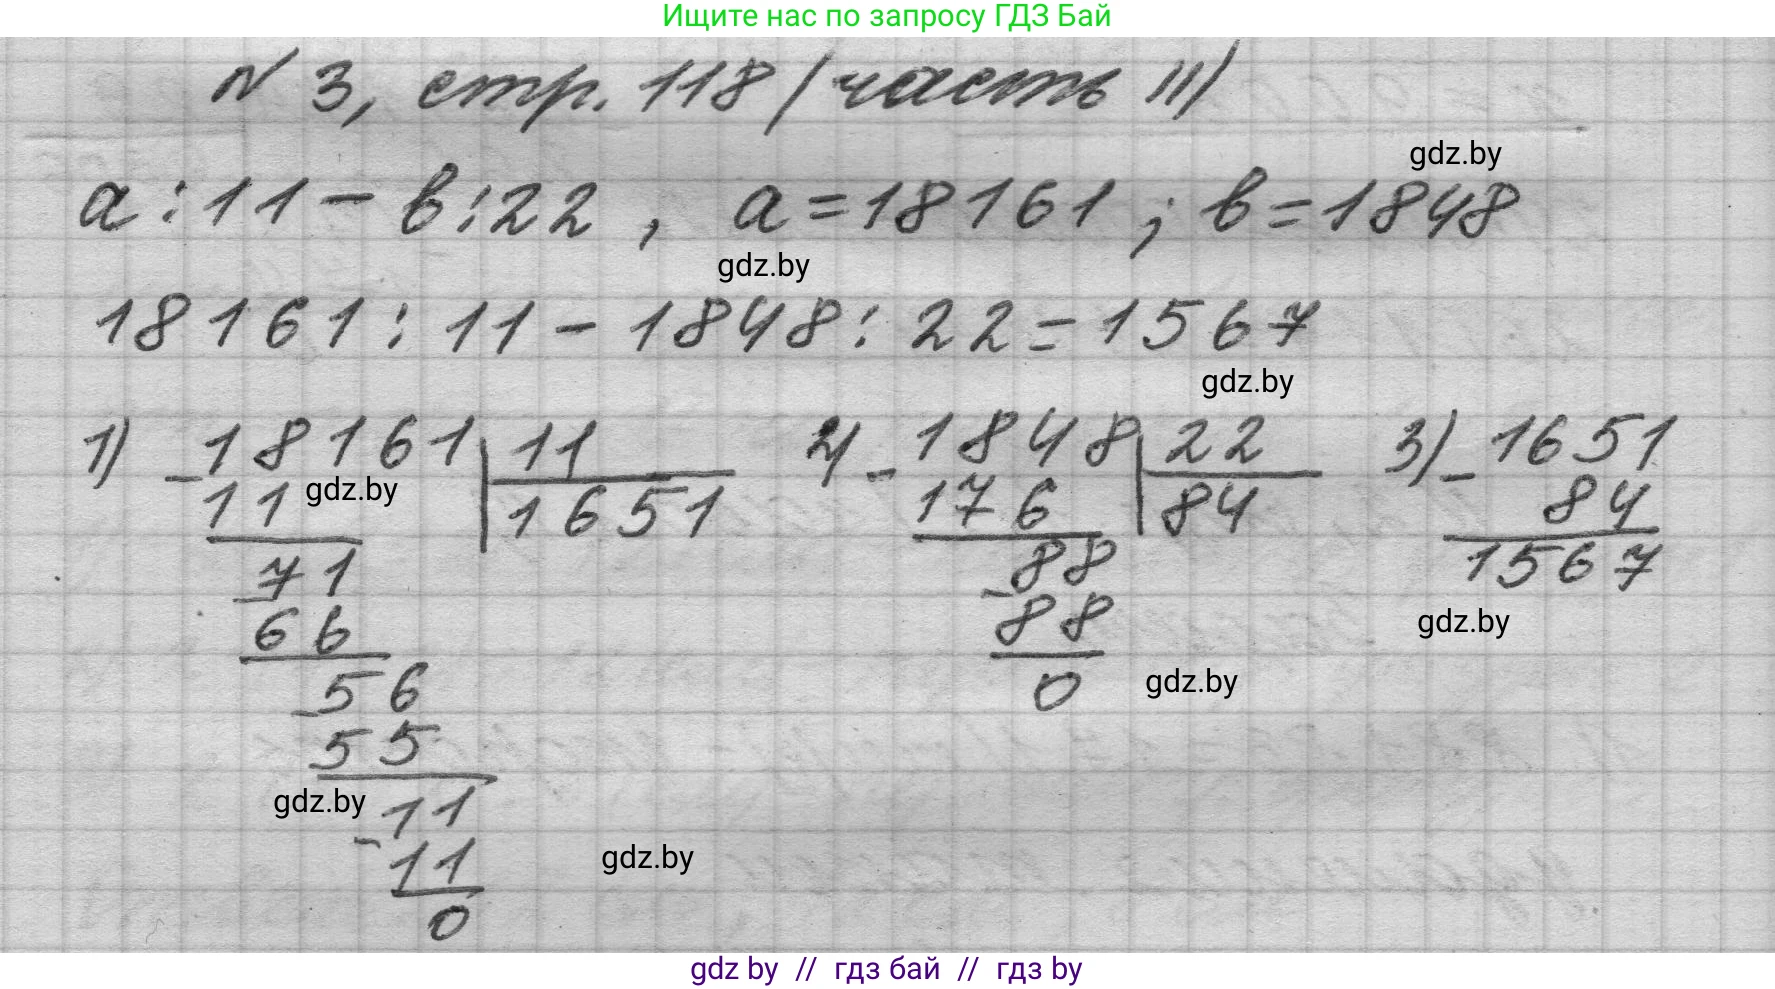 Ищите нас по запросу ГДЗ Бай
N 3, стр. 118 (часть II)
gdz.by
a : 11 - b : 22 , a = 18161 ; b = 1848
gdz.by
18161 : 11 - 1848 : 22 = 1567
gdz.by
1) - 18161 | 11
11
gdz.by
1651
71
- 66
56
- 55
gdz.by
11
- 11
0
gdz.by
2) - 1848 | 22
176
84
88
- 88
0
gdz.by
3) - 1651
84
1567
gdz.by
gdz by // гдз бай // гдз by